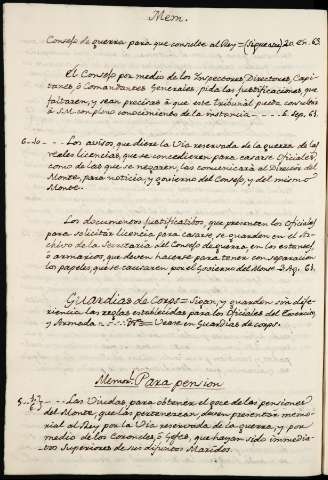 Mem.
Consejo de guerra para que consulte al Rey = (Siguense) 20. En. 63.
El Consejo por medio de los Inspectores, Directores, Capi-
tanes, ò Comandantes Generales pida las justificaciones, que
faltaren, y sean precisas à que este tribunal pueda consultar
à S.M. con pleno conocimiento de la instancia ---- 6 Sep. 61.
6-10 --- Los avisos, que diere la Via reservada de la guerra de las
reales licencias, que se concedieren para casarse Oficiales,
como de las que se negaren, las comunicarà al Director del
Monte, para noticia, y govierno del Consejo, y del mismo
Monte.
Los documentos justificativos, que presenten los Oficiales
para solicitar licencia para casarse, se guarden en el Ar-
chivo de la Secretaria del Consejo de guerra, en los estantes,
ò armarios, que deven hacerse para tener con separacion
los papeles, que se causaren por el Govierno del Monte. 3 Ag. 61.
Guardias de Corps = Sigan, y guarden sin dife-
riencia las reglas establecidas para los Oficiales del Exercito,
y Armada --- = Vease en Guardias de corps.
Memor.l Para pension
5. --- Las Viudas, para obtener el goce de las pensiones
del Monte, que les pertenezcan, deven presentar memo-
rial al Rey por la Via reservada de la guerra, y por
medio de los Coroneles, ò Gefes, que hayan sido immedia-
tos Superiores de sus difuntos Maridos.